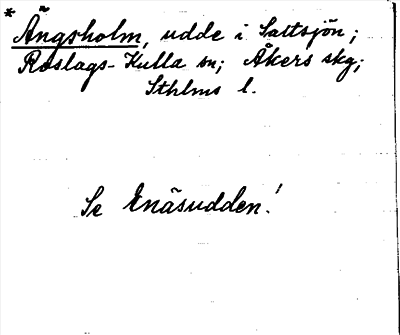 * Ängsholm, udde i Saltsjön;
Roslags-Kulla sn; Åkers skg;
Sthlms l.
Se Enäsudden!